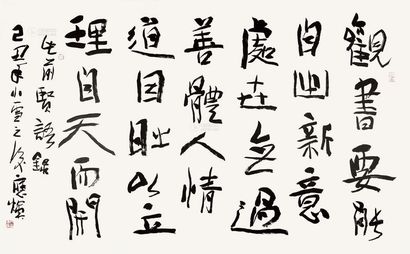 觀書要能
自出新意
處世無過
善體人情
道因時以立
理自天而開
前賢語錄
己丑年小雪之後